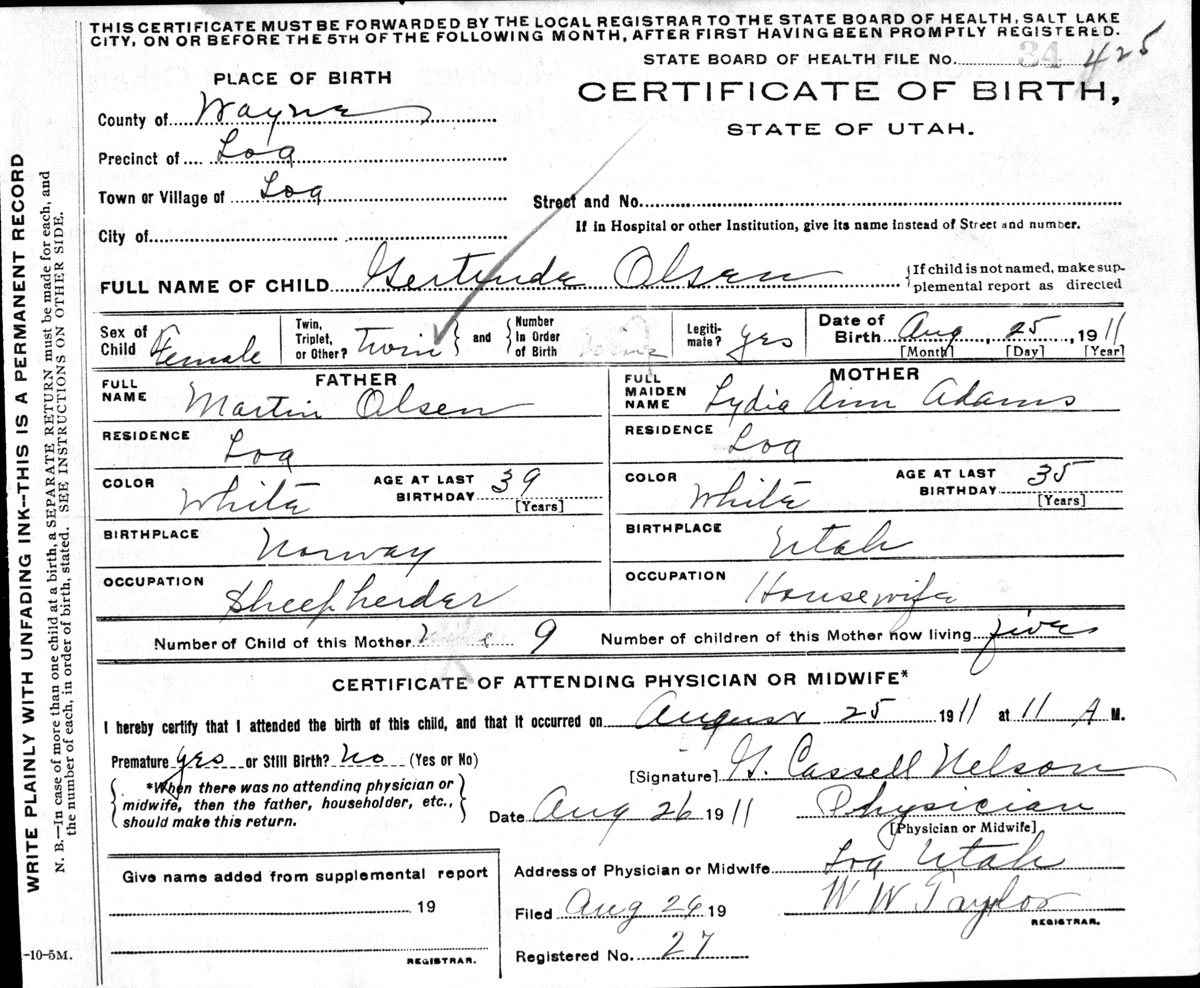 THIS CERTIFICATE MUST BE FORWARDED BY THE LOCAL REGISTRAR TO THE STATE BOARD OF HEALTH, SALT LAKE
CITY, ON OR BEFORE THE 5TH OF THE FOLLOWING MONTH, AFTER FIRST HAVING BEEN PROMPTLY REGISTERED.
STATE BOARD OF HEALTH FILE No. 34 425
PLACE OF BIRTH
CERTIFICATE OF BIRTH,
STATE OF UTAH.
County of Wayne
Precinct of Loa
Town or Village of Loa
Street and No.
City of
If in Hospital or other Institution, give its name instead of Street and number.
FULL NAME OF CHILD Gertrude Olsen
{If child is not named, make sup-
plemental report as directed
Sex of Child Female
Twin, Triplet, or Other? Twin } and { Number In Order of Birth
Legiti-mate? yes
Date of Birth Aug, 25, 1911
[Month] [Day] [Year]
FATHER
FULL NAME Martin Olsen
RESIDENCE Loa
COLOR White AGE AT LAST BIRTHDAY 39
[Years]
BIRTHPLACE Norway
OCCUPATION Sheepherder
MOTHER
FULL MAIDEN NAME Lydia Ann Adams
RESIDENCE Loa
COLOR White AGE AT LAST BIRTHDAY 35
[Years]
BIRTHPLACE Utah
OCCUPATION Housewife
Number of Child of this Mother 9 Number of children of this Mother now living five
CERTIFICATE OF ATTENDING PHYSICIAN OR MIDWIFE*
I hereby certify that I attended the birth of this child, and that it occurred on August 25 1911 at 11 A M.
Premature yes or Still Birth? No (Yes or No)
{ *When there was no attending physician or
midwife, then the father, householder, etc.,
should make this return. }
[Signature] G. Cassell Nelson
Date Aug 26 1911 Physician
[Physician or Midwife]
Address of Physician or Midwife Loa Utah
Filed Aug 26 19 W W Taylor
REGISTRAR.
Registered No. 27
Give name added from supplemental report
19
REGISTRAR.
-10-5M.
WRITE PLAINLY WITH UNFADING INK—THIS IS A PERMANENT RECORD
N. B.—In case of more than one child at a birth, a SEPARATE RETURN must be made for each, and
the number of each, in order of birth, stated. SEE INSTRUCTIONS ON OTHER SIDE.